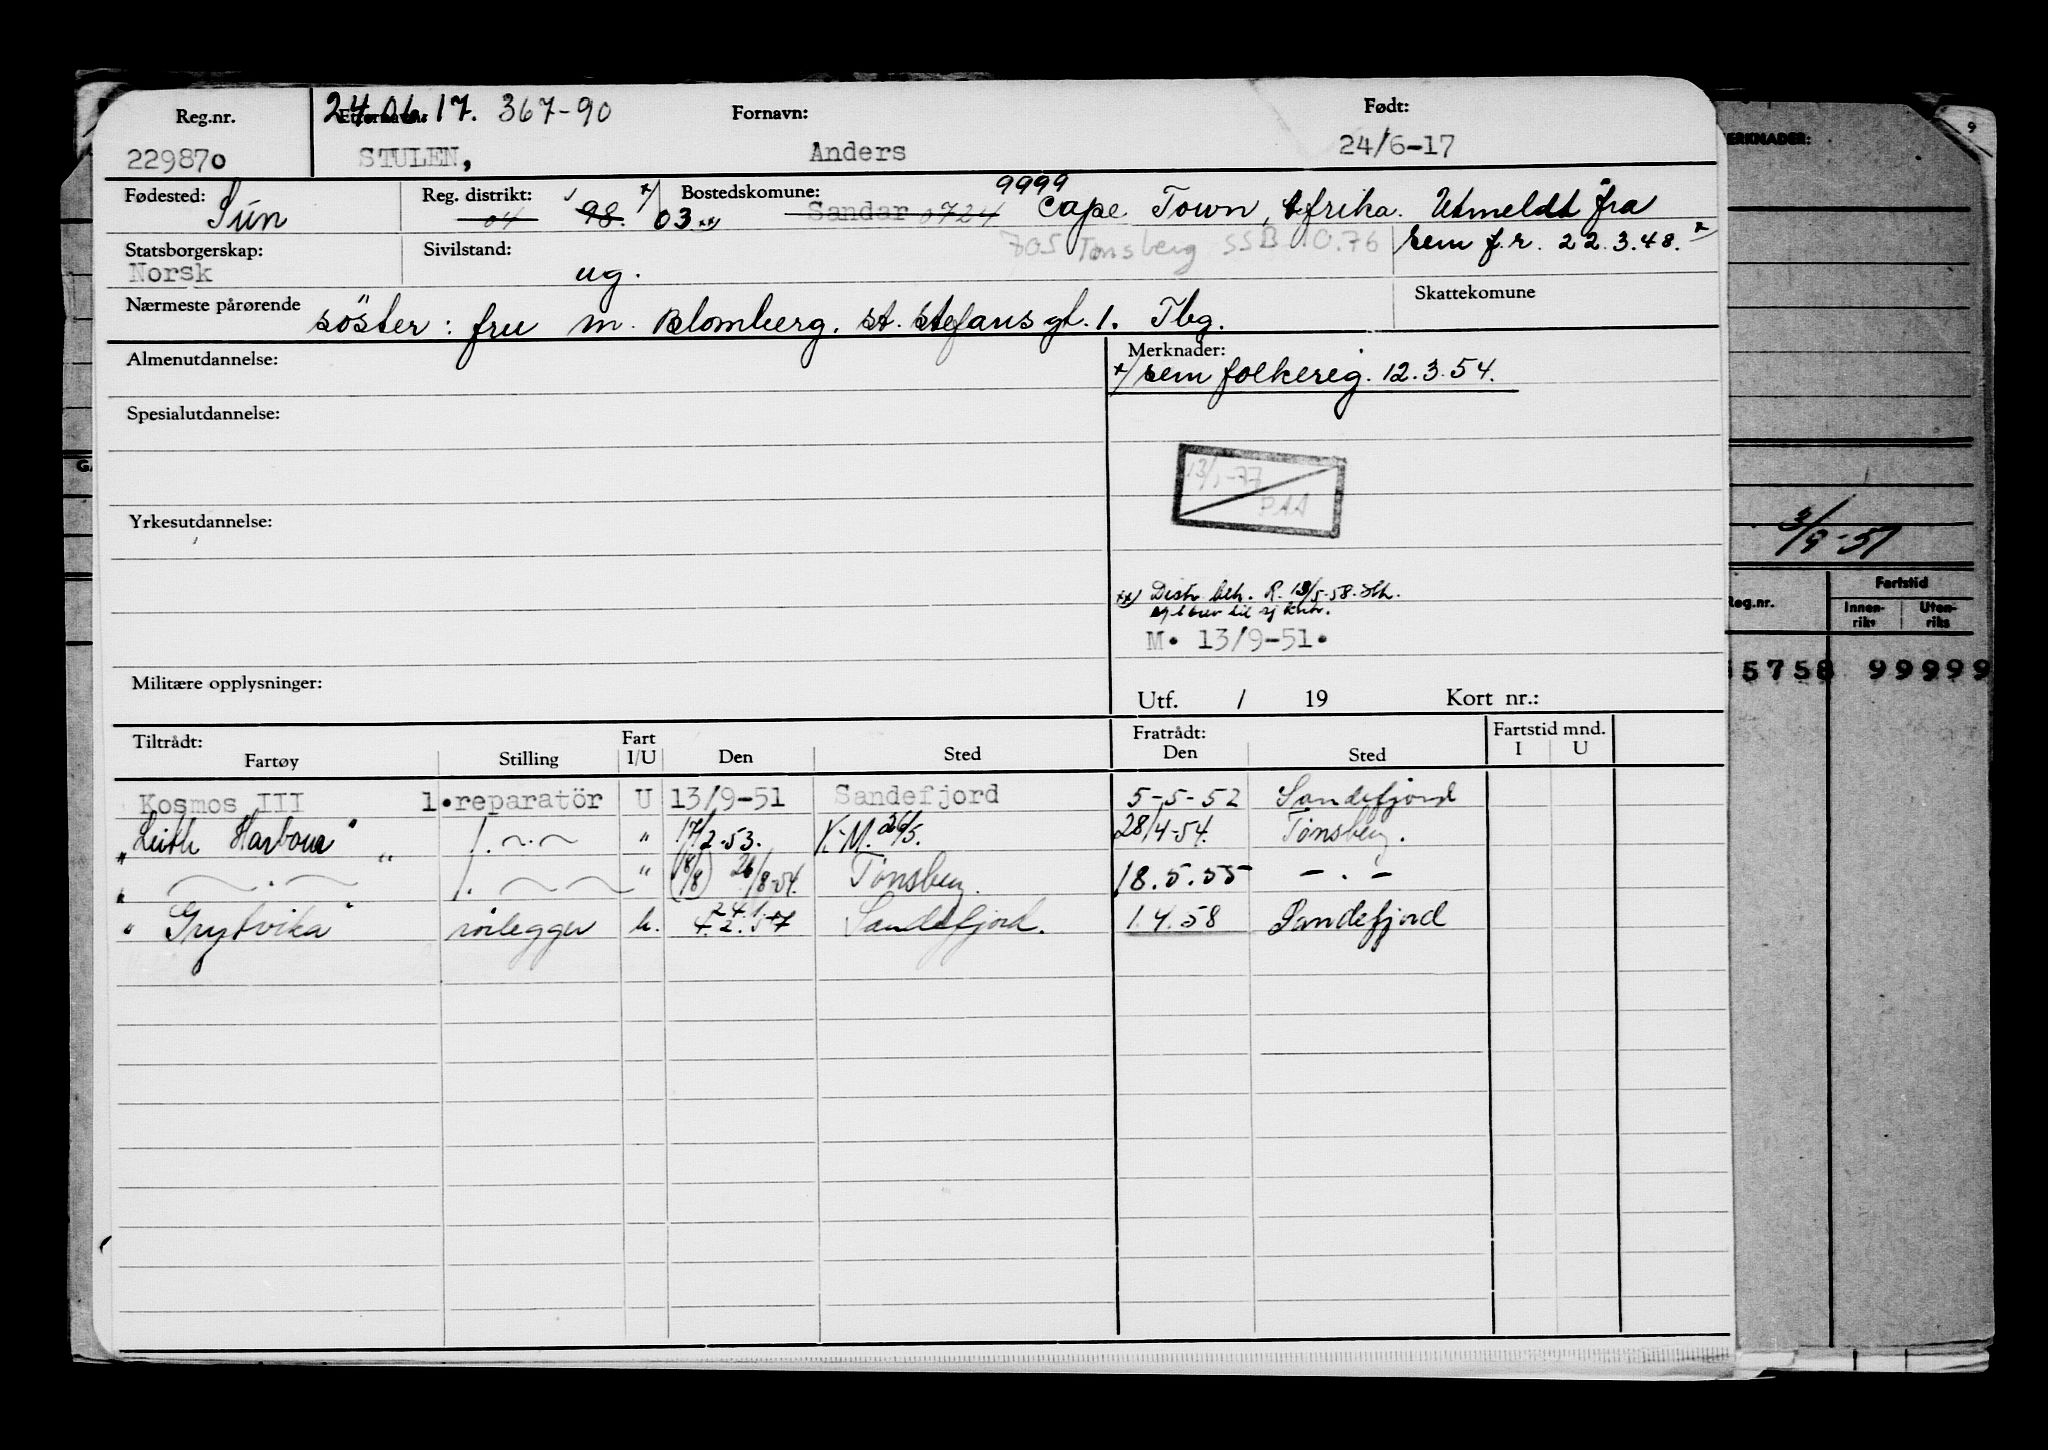 Reg.nr. Etternavn: 24.06.17. 367-90 Fornavn: Født:
229870 STULEN, Anders 24/6-17
Fødested: Sün Reg. distrikt: 04 98. x/ 03 xx) Bostedskomune: Sandar 0724 9999 Cape Town, Afrika. Utmeldt fra
Statsborgerskap: Norsk Sivilstand: ug. 705 Tønsberg SSB 10.76 Sem f.r. 22.3.48. x
Nærmeste pårørende søster: fru M. Blomberg. St. Stefansgt. 1. Tbg. Skattekomune
Almenutdannelse: Merknader:
x/ Sem folkereg. 12.3.54.
Spesialutdannelse:
13/1-77
PAA
Yrkesutdannelse:
xx) Distr.
M. 13/9-51.
Militære opplysninger: Utf. / 19 Kort nr.:
Tiltrådt: Fratrådt: Fartstid mnd.
Fartøy Stilling Fart I/U Den Sted Den Sted I U
Kosmos III 1.reparatör U 13/9-51 Sandefjord 5-5-52 Sandefjord
"Leith Harbour" 1. -"- " 17/2-53. K.M. 26/5. 28/4-54. Tønsberg.
" -"- 1. -"- " (18/8) 26/8-54. Tønsberg. 18.5.55 -.-
"Grytvika" rörlegger u. 24.1. 4.2.57 Sandefjord. 1.4.58 Sandefjord
MERKNADER:
9
3/9-51
Reg.nr. Fartstid
Innen-riks Uten-riks
5758 99999